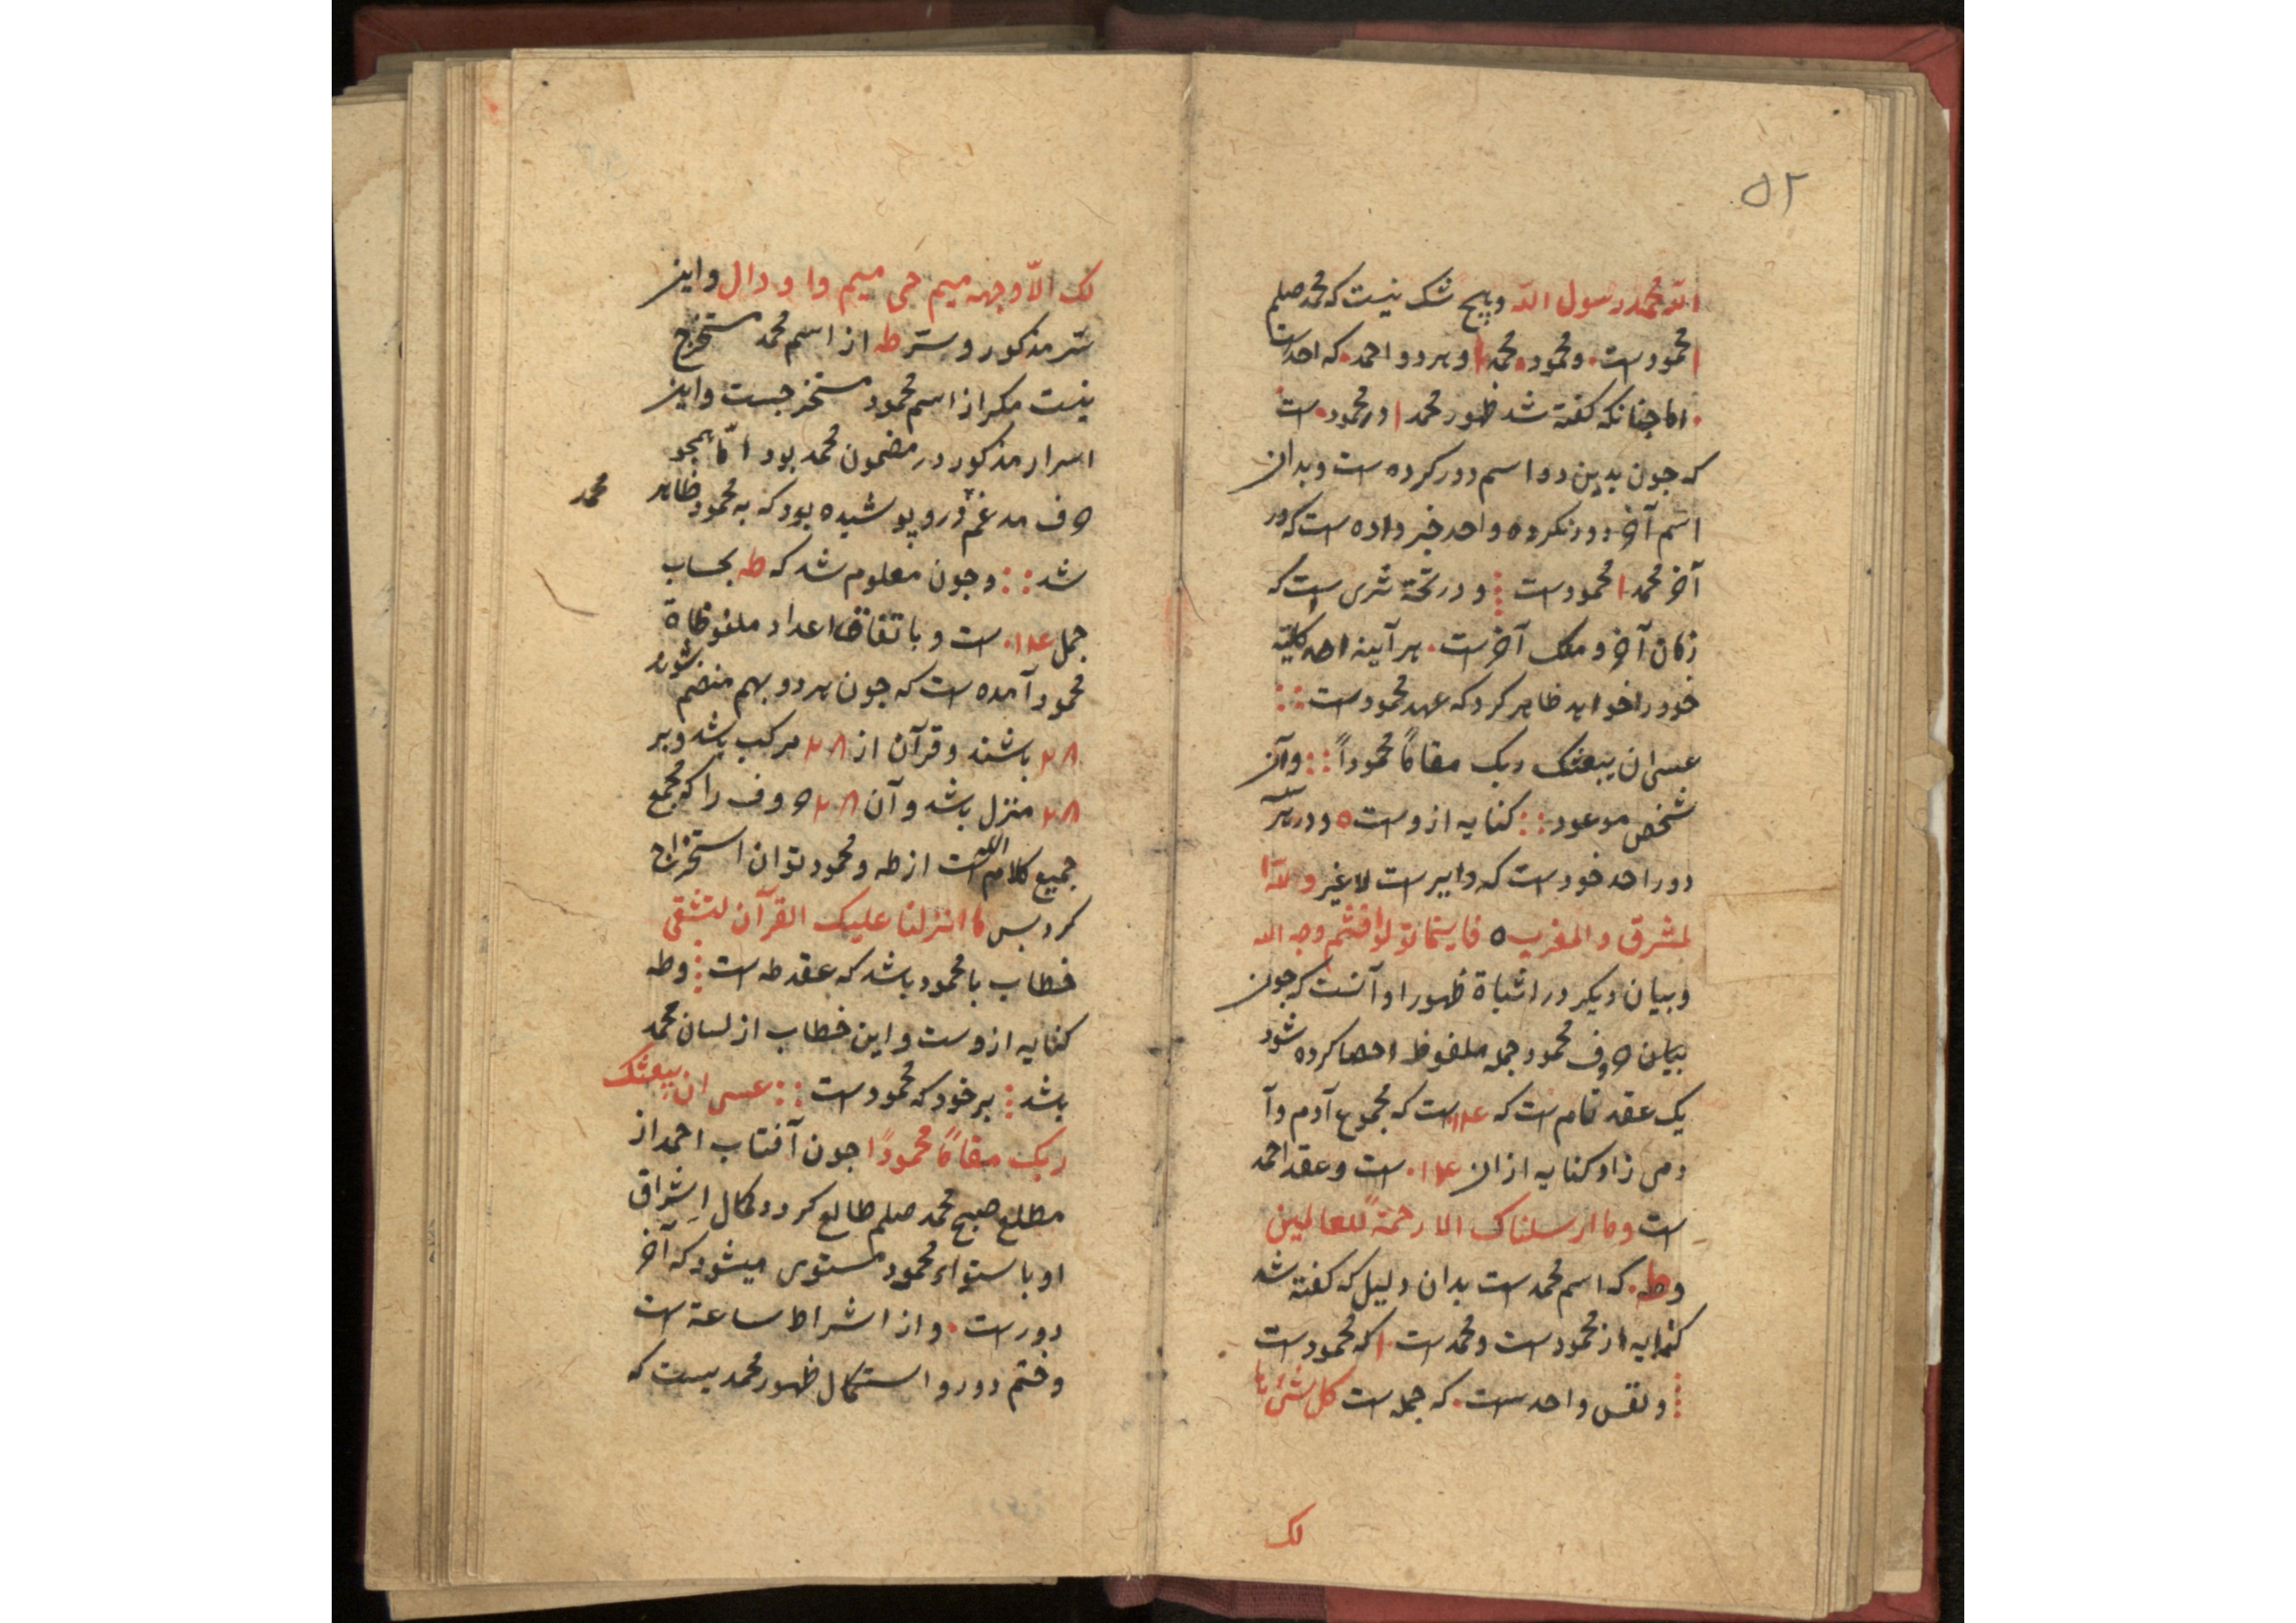 ۵۲
الله محمد رسول الله و هیچ شک نیست که محمد صلم
ا محمودست. و محمود. محمد ا و هر دو احمد. که احدست
. اما چنانکه کفته شد ظهور محمد ا در محمود. ست
که جون بدین دو اسم دور کرده ست و بدان
اسم آخر دور نکرده و احد خبر داده ست که در
آخر محمد ا محمودست و در تحته ثری ست که
زمان آخر و ملک آخرست. هر آینه احد کلیته
خود را خواهد ظاهر کرد که عهد محمودست ::
عسی ان یبعثک ربک مقاماً محموداً :: و آن
شخص موعود :: کنایه ازوست ه و در هر
دور احد خودست که دایرست لاغیر ولله ا
لمشرق والمغرب ه فاینما تولوا فثم وجه الله
و بیان دیکر در اثباة ظهور او آنست که جون
بیان حروف محمود جمله ملفوظ احصا کرده شود
یک عقد تمام ست که ۱۴ ست که مجموع آدم و آ
دمی زاد کنایه از ان ۱۴. ست و عقد احمد
ست وما ارسلناک الا رحمةً للعالمین
و طه. که اسم محمد ست بدان دلیل که کفته شد
کنایه از محمودست و محمدست ا که محمودست
و نفس واحدست. که جمله ست کل شئ ها
لک
لک الّا وجهه میم حی میم واو دال و این
ستر مذکور و ستر طه از اسم محمد مستخرج
نیست مکر از اسم محمود مستخرجست و این
اسرار مذکور در مضمون محمد بود امّا همچو
حرف مدغم درو پوشیده بود که به محمود ظاهر
محمد
شد :: و جون معلوم شد که طه بحساب
جمل ۱۴. ست و باتفاق اعداد ملفوظاة
محمود آمده ست که جون هر دو بهم منضم شوند
۲۸ باشند و قرآن از ۲۸ مرکب باشد و بر
۲۸ منزل باشد و آن ۲۸ حروف را که مجمع
جمیع کلام الله است از طه و محمود توان استخراج
کرد بس ما انزلنا علیک القرآن لتشقی
خطاب با محمود باشد که عقد طه ست و طه
کنایه ازوست و این خطاب از لسان محمد
باشد بر خود که محمودست :: عسی ان یبعثک
ربک مقاماً محموداً جون آفتاب احمد از
مطلع صبح محمد صلم طالع کردد کمال اشراق
او باستواء محمود مستوی میشود که آخر
دورست. و از اشراط ساعة ست
و ختم دور و استکمال ظهور محمدیست که